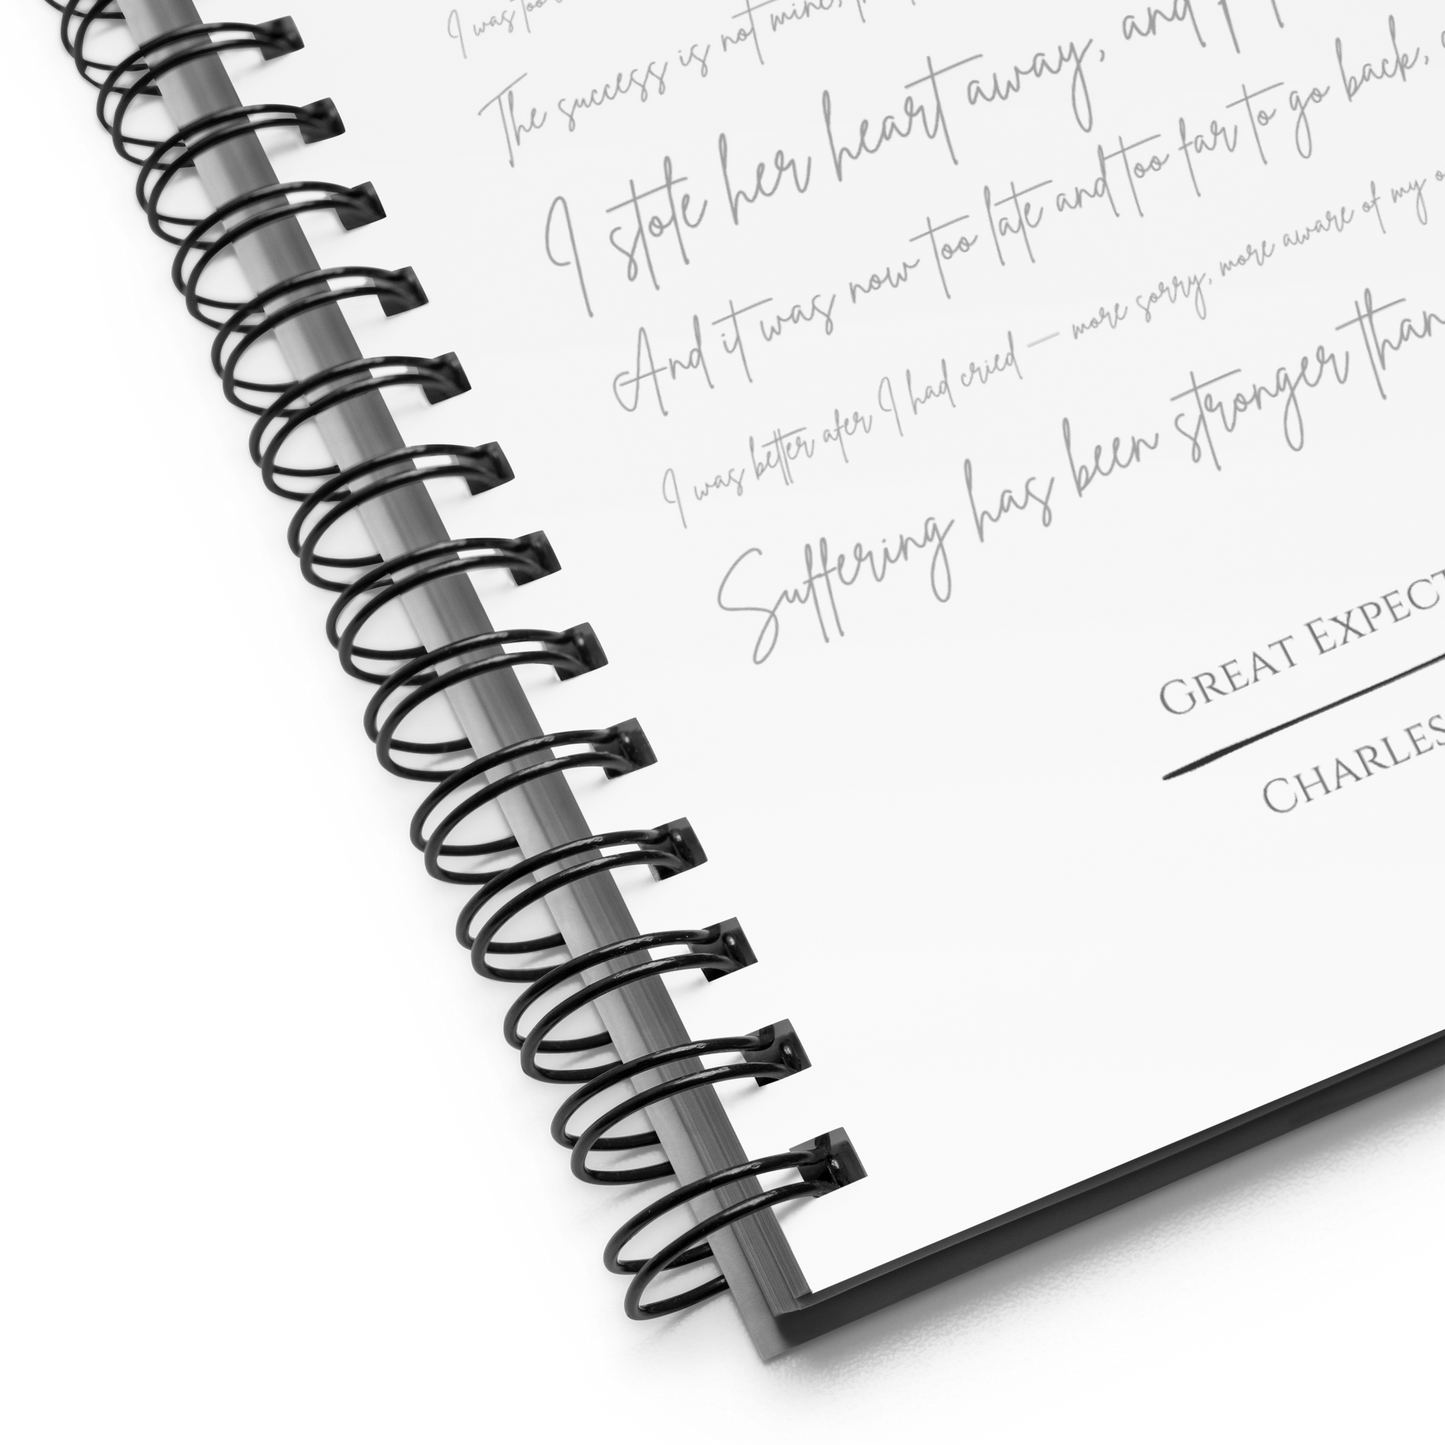 I was too
The success is not mine,
I stole her heart away, and
And it was now too late and too far to go back,
I was better afer I had cried — more sorry, more aware of my o
Suffering has been stronger than
GREAT EXPECT
CHARLES